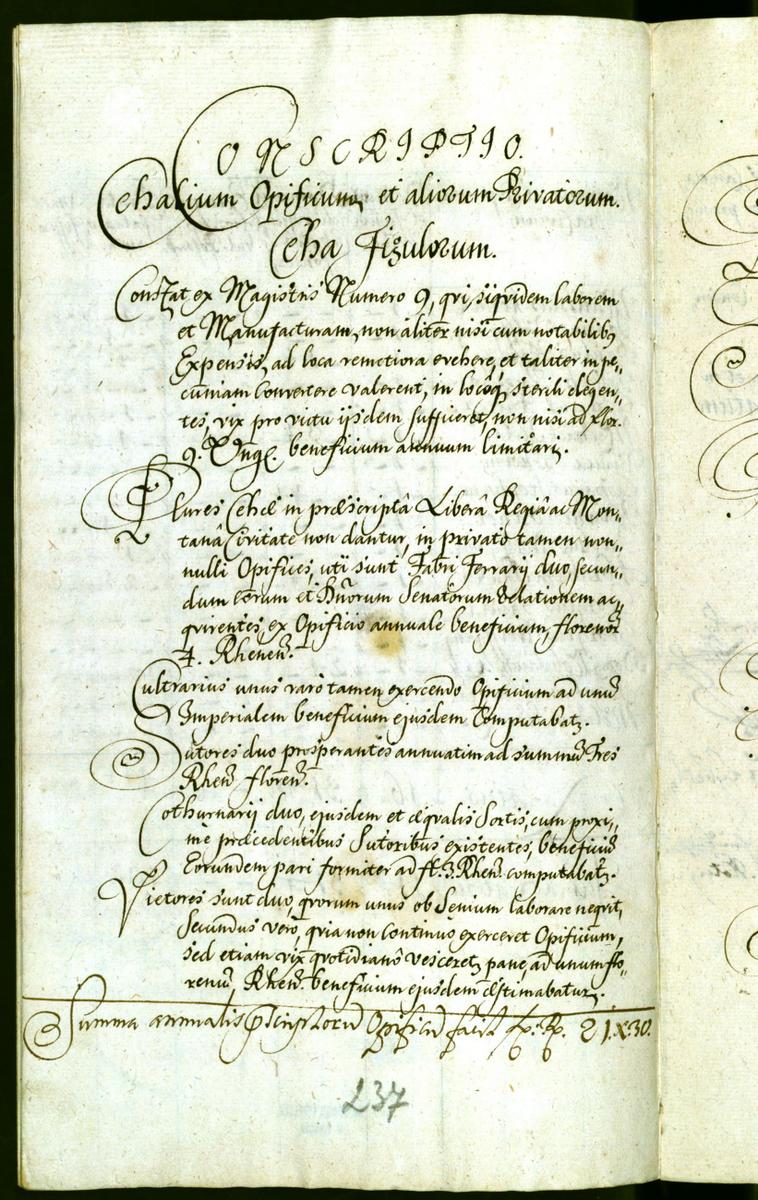 CONSCRIPTIO.
Cehalium Opificum, et aliorum Privatorum.
Ceha Figulorum.
Constat ex Magistris Numero 9, qvi, siqvidem laborem
et Manufacturam, non aliter nisi cum notabilibq
Expensis, ad loca remotiora evehere, et taliter in pe„
cuniam convertere valerent, in locoq sterili degen„
tes, vix pro victu ijsdem sufficeret, non nisi ad flor.
9. Ung. beneficium annuum limitari.
Plures Cehæ in præscriptâ Liberâ Regiâ ac Mon„
tanâ Civitate non dantur, in privato tamen non„
nulli Opifices, uti sunt Fabri Ferrarij duo, secun„
dum eorum et Dnorum Senatorum Relationem ac„
qvirentes, ex Opificio annuale beneficium, florenor
4. Rhenen.
Cultrarius unus raro tamen exercendo Opificium ad unu
Imperialem beneficium ejusdem Computabatr.
Sutores duo prosperantes annuatim ad summu Tres
Rhen. floren.
Cothurnarij duo, ejusdem et æqvalis Sortis, cum proxi„
me præcedentibus Sutoribus existentes, beneficiu
Eorundem pari formiter ad fl. 3. Rhen. computabatr.
Vietores sunt duo, qvorum unus ob Senium laborare neqvit,
Secundus verò, qvia non continuo exerceret Opificium,
sed etiam vix qvotidianô vesceretr pane, ad unum flo„
renu Rhen. beneficium ejusdem æstimabatur.
Summa annualis pscriptoru Opificu facit fl. R. 21. x. 30.
237